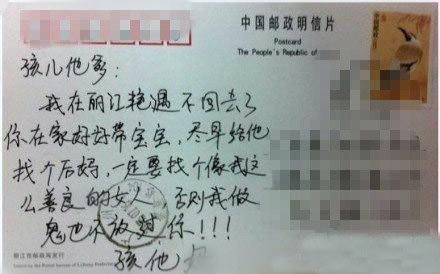 中国邮政明信片
Postcard
The People's Republic of
孩儿他爹：
我在丽江艳遇不回去了
你在家好好带宝宝，尽早给他
找个后妈，一定要找个像我这
么善良的女人 否则我做
鬼也不放过你!!!
孩他
丽江市邮政局发行